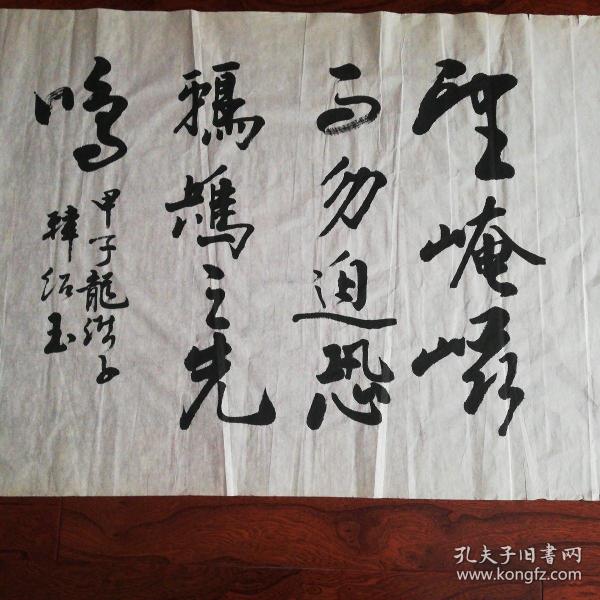 望崦嵫
而勿迫恐
鵶鵙之先
鳴
甲子龍
韓紹玉
孔夫子旧书网
www.kongfz.com